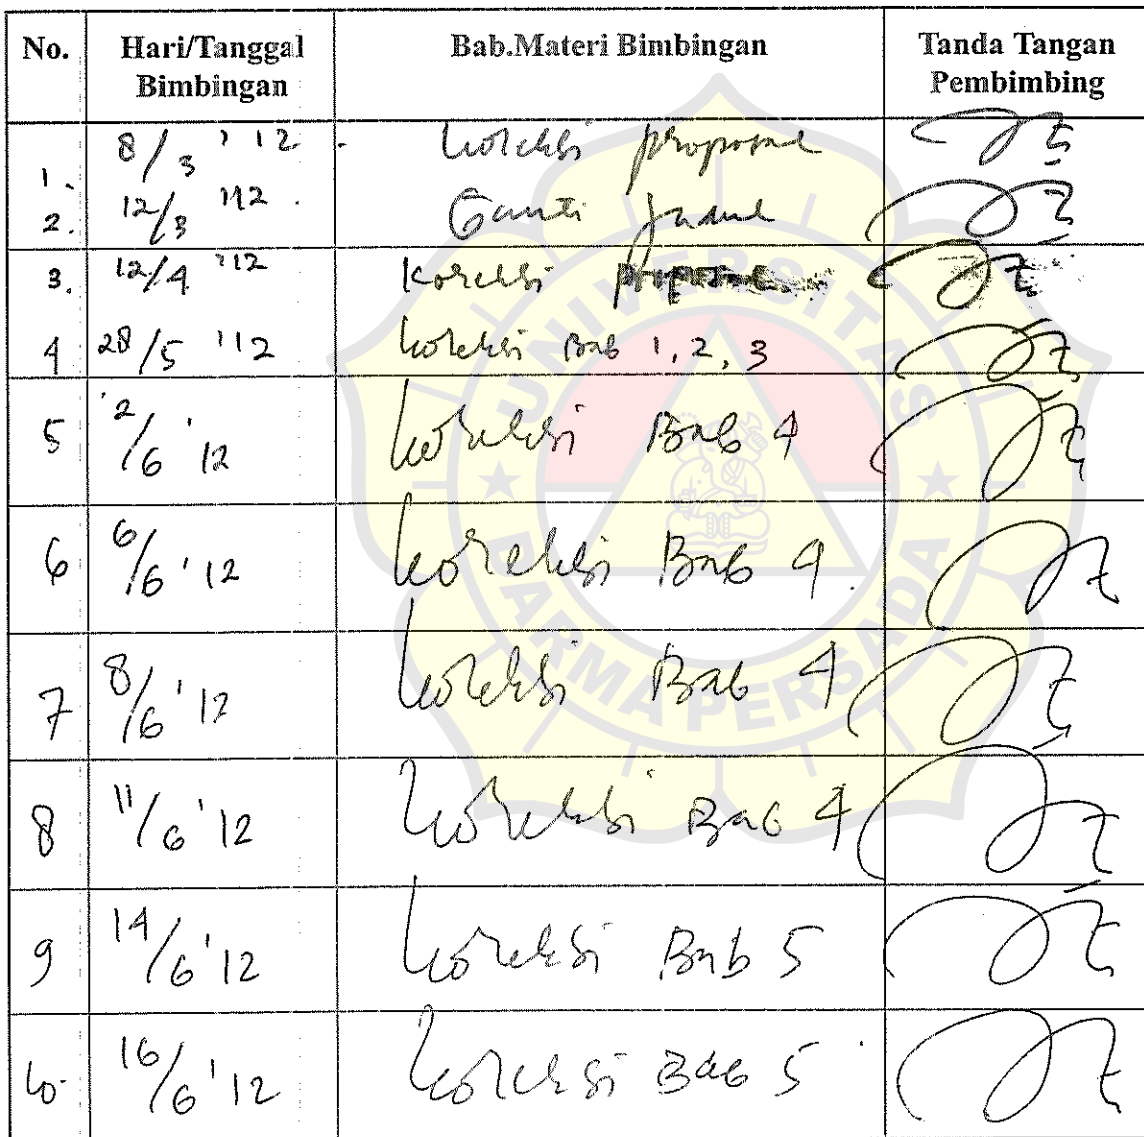 No. Hari/Tanggal Bimbingan Bab.Materi Bimbingan Tanda Tangan Pembimbing
1. 8/3 '12 - koreksi proposal
2. 12/3 '12 . Ganti judul
3. 12/4 '12 koreksi proposal
4 28/5 '12 koreksi Bab 1, 2, 3
5 2/6 '12 koreksi Bab 4
6 6/6 '12 koreksi Bab 4.
7 8/6 '12 koreksi Bab 4
8 11/6 '12 koreksi Bab 4
9 14/6 '12 koreksi Bab 5
10. 16/6 '12 koreksi Bab 5
UNIVERSITAS
DARMA PERSADA